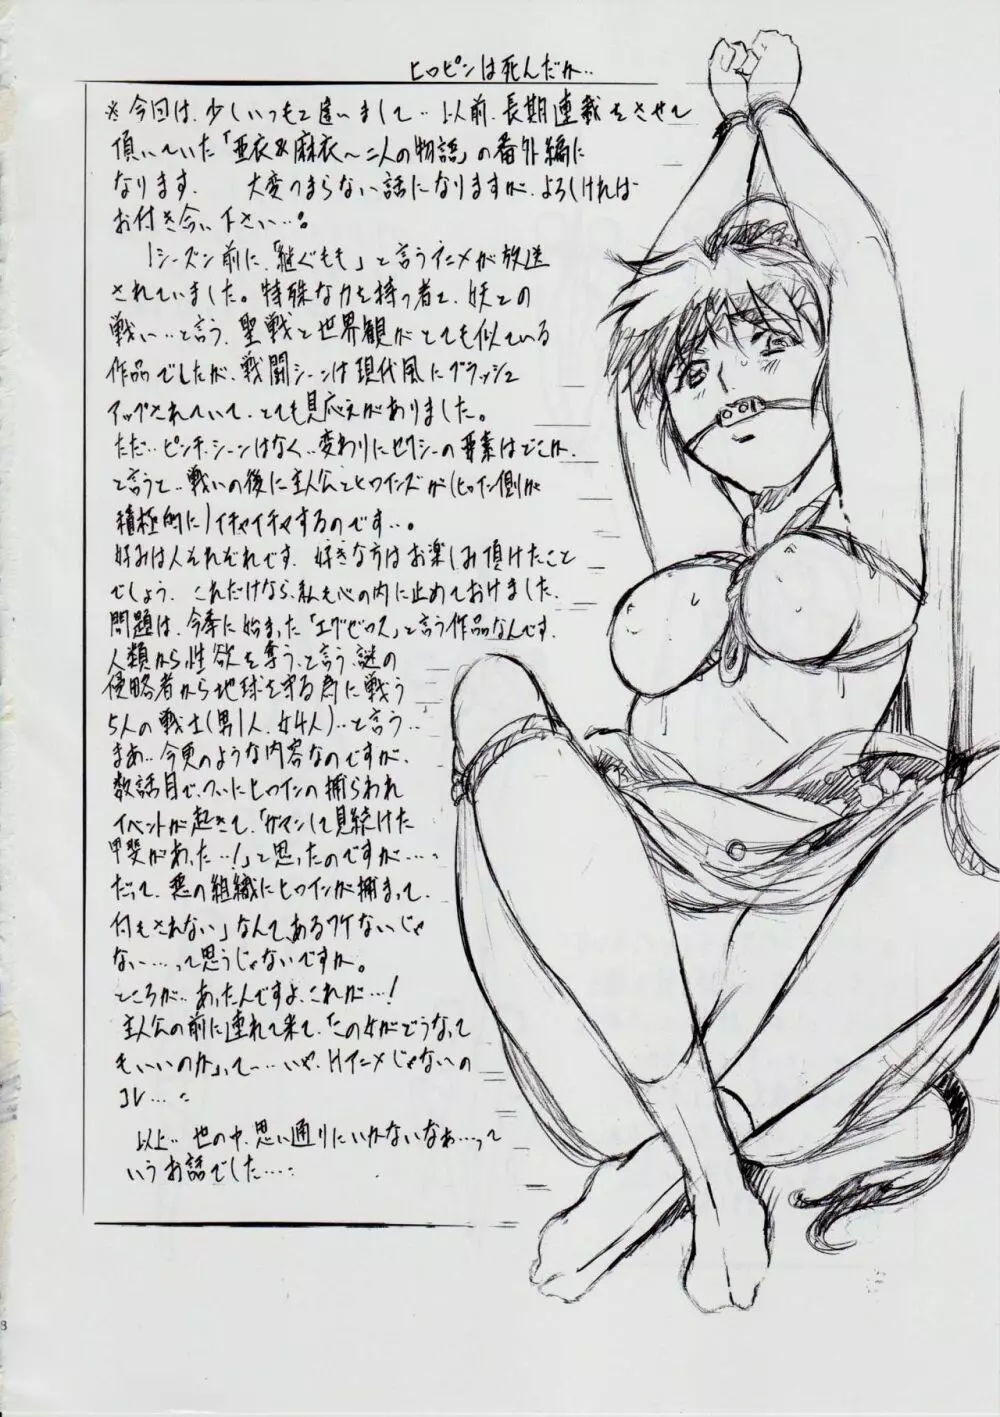 ヒロピンは死んだか‥
※今回は、少しいつもと違いまして‥以前、長期連載をさせて
頂いていた「亜衣&麻衣～二人の物語」の番外編に
なります。 大変つまらない話になりますが、よろしければ
お付き合い下さい…。
1シーズン前に、「継ぐもも」と言うアニメが放送
されていました。特殊な力を持つ者と、妖との
戦い‥と言う、聖戦と世界観がとても似ている
作品でしたが、戦闘シーンは現代風にブラッシュ
アップされていて、とても見応えがありました。
ただ‥ピンチシーンはなく‥変わりにセクシーの要素はどこか、
と言うと‥戦いの後に主人公とヒロインズが(ヒロイン側が
積極的に)イチャイチャするのです‥。
好みは人それぞれです。好きな方はお楽しみ頂けたこと
でしょう。これだけなら、私も心の内に止めておけました。
問題は、今季に始まった「エグゼロス」と言う作品なんです。
人類から性欲を奪う、と言う、謎の
侵略者から地球を守る為に戦う
5人の戦士(男1人、女4人)‥と言う‥
まあ‥今更のような内容なのですが、
数話目で、ついにヒロインの捕らわれ
イベントが起きて、「ガマンして見続けた
甲斐があった…!」と思ったのですが…。
だって、悪の組織にヒロインが捕まって、
何もされない」なんて、あるワケないじゃ
ない…って思うじゃないですか。
ところが‥あったんですよ、これが…!
主人公の前に連れて来て、「この女がどうなって
もいいのか」って〜…いや、Hアニメじゃないの
コレ…
以上‥世の中、思い通りにいかないなぁ…って
いうお話でした…